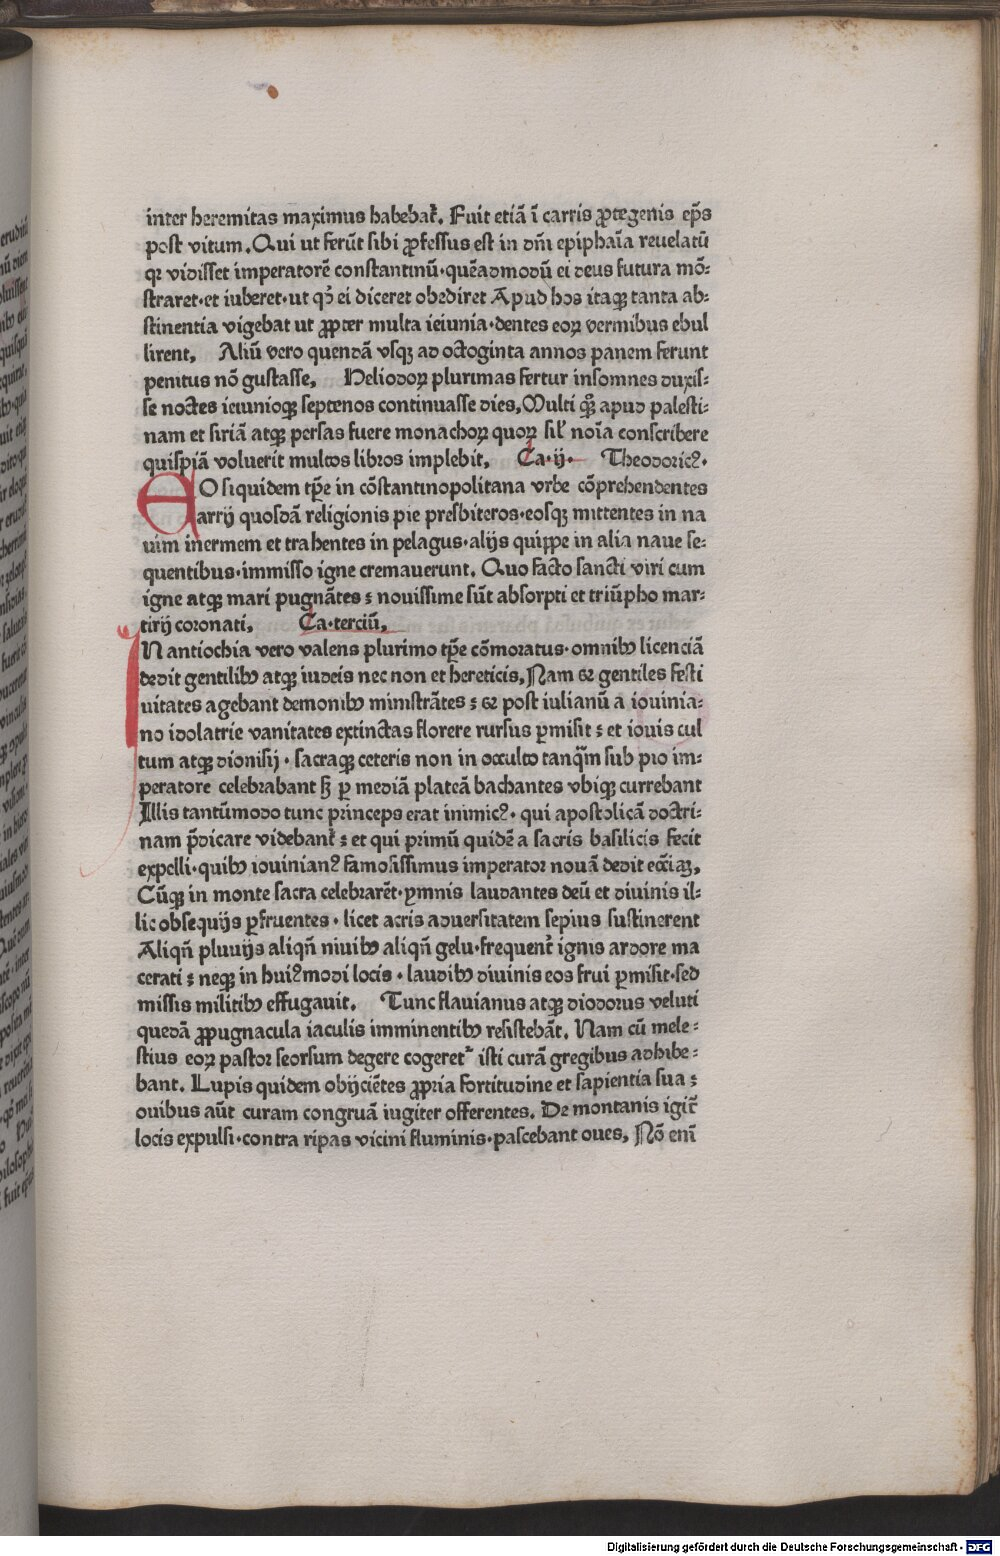 inter heremitas maximus habebat᷑. Fuit etiā ī carris ꝓtegenis ep̄s
post vitum. Qui ut ferūt sibi ꝓfessus est in dn̄i epiphaīa reuelatū
qꝛ vidisset imperatorē constantinū·quēadmodū ei deus futura mō⸗
straret·et iuberet·ut qꝫ ei diceret obediret Apud hos itaqꝫ tanta ab⸗
stinentia vigebat ut ꝓpter multa ieiunia·dentes eoꝝ vermibus ebul
lirent, Aliū vero quendā vsqꝫ ad octoginta annos panem ferunt
penitus nō gustasse, Heliodoꝝ plurimas fertur insomnes duxis⸗
se noctes ieiunioqꝫ septenos continuasse dies, Multi qꝫ̄ apud palesti⸗
nam et siriā atqꝫ persas fuere monachoꝝ quoꝝ sil̛ noīa conscribere
quispiā voluerit multos libros implebit, Ca·ij· Theodoricꝰ·
EO siquidem tp̄e in cōstantinopolitana vrbe cōprehendentes
arrij quosdā religionis pie presbiteros·eosqꝫ mittentes in na
uim inermem et trahentes in pelagus·alijs quippe in alia naue se⸗
quentibus·immisso igne cremauerunt. Quo facto sancti viri cum
igne atqꝫ mari pugnātes ꝫ nouissime sūt absorpti et triūpho mar⸗
tirij coronati, Ca·terciū,
IN antiochia vero valens plurimo tp̄e cōmoratus·omnibꝰ licenciā
dedit gentilibꝰ atqꝫ iudeis nec non et hereticis, Nam ꝛ gentiles festi
uitates agebant demonibꝰ ministrātes ꝫ ꝛ post iulianū a iouinia⸗
no idolatrie vanitates extinctas florere rursus ꝑmisit ꝫ et iouis cul
tum atqꝫ dionisij·sacraqꝫ ceteris non in occulto tanqm̄ sub pio im⸗
peratore celebrabant sꝫ ꝑ mediā plateā bachantes vbiqꝫ currebant
Illis tantūmodo tunc princeps erat inimicꝰ·qui apostolicā doctri⸗
nam p̄dicare videbant᷑ ꝫ et qui primū quidē a sacris basilicis fecit
expelli·quibꝰ iouinianꝰ famosissimus imperator nouā dedit ecc̄iaꝫ,
Cūqꝫ in monte sacra celebrarēt·ymnis laudantes deū et diuinis il⸗
lic obsequijs ꝑfruentes·licet acris aduersitatem sepius sustinerent
Aliqn̄ pluuijs aliqn̄ niuibꝰ aliqn̄ gelu·frequent᷑ ignis ardore ma
cerati ꝫ neqꝫ in huiꝰmodi locis·laudibꝰ diuinis eos frui ꝑmisit·sed
missis militibꝰ effugauit, Tunc flauianus atqꝫ diodorus veluti
quedā ꝓpugnacula iaculis imminentibꝰ resistebāt. Nam cū mele⸗
stius eoꝝ pastor seorsum degere cogeret᷑ isti curā gregibus adhibe⸗
bant. Lupis quidem obijciētes ꝓpria fortitudine et sapientia sua ꝫ
ouibus aūt curam congruā iugiter offerentes. De montanis igit᷑
locis expulsi·contra ripas vicini fluminis·pascebant oues, Nō enī
Digitalisierung gefördert durch die Deutsche Forschungsgemeinschaft - DFG